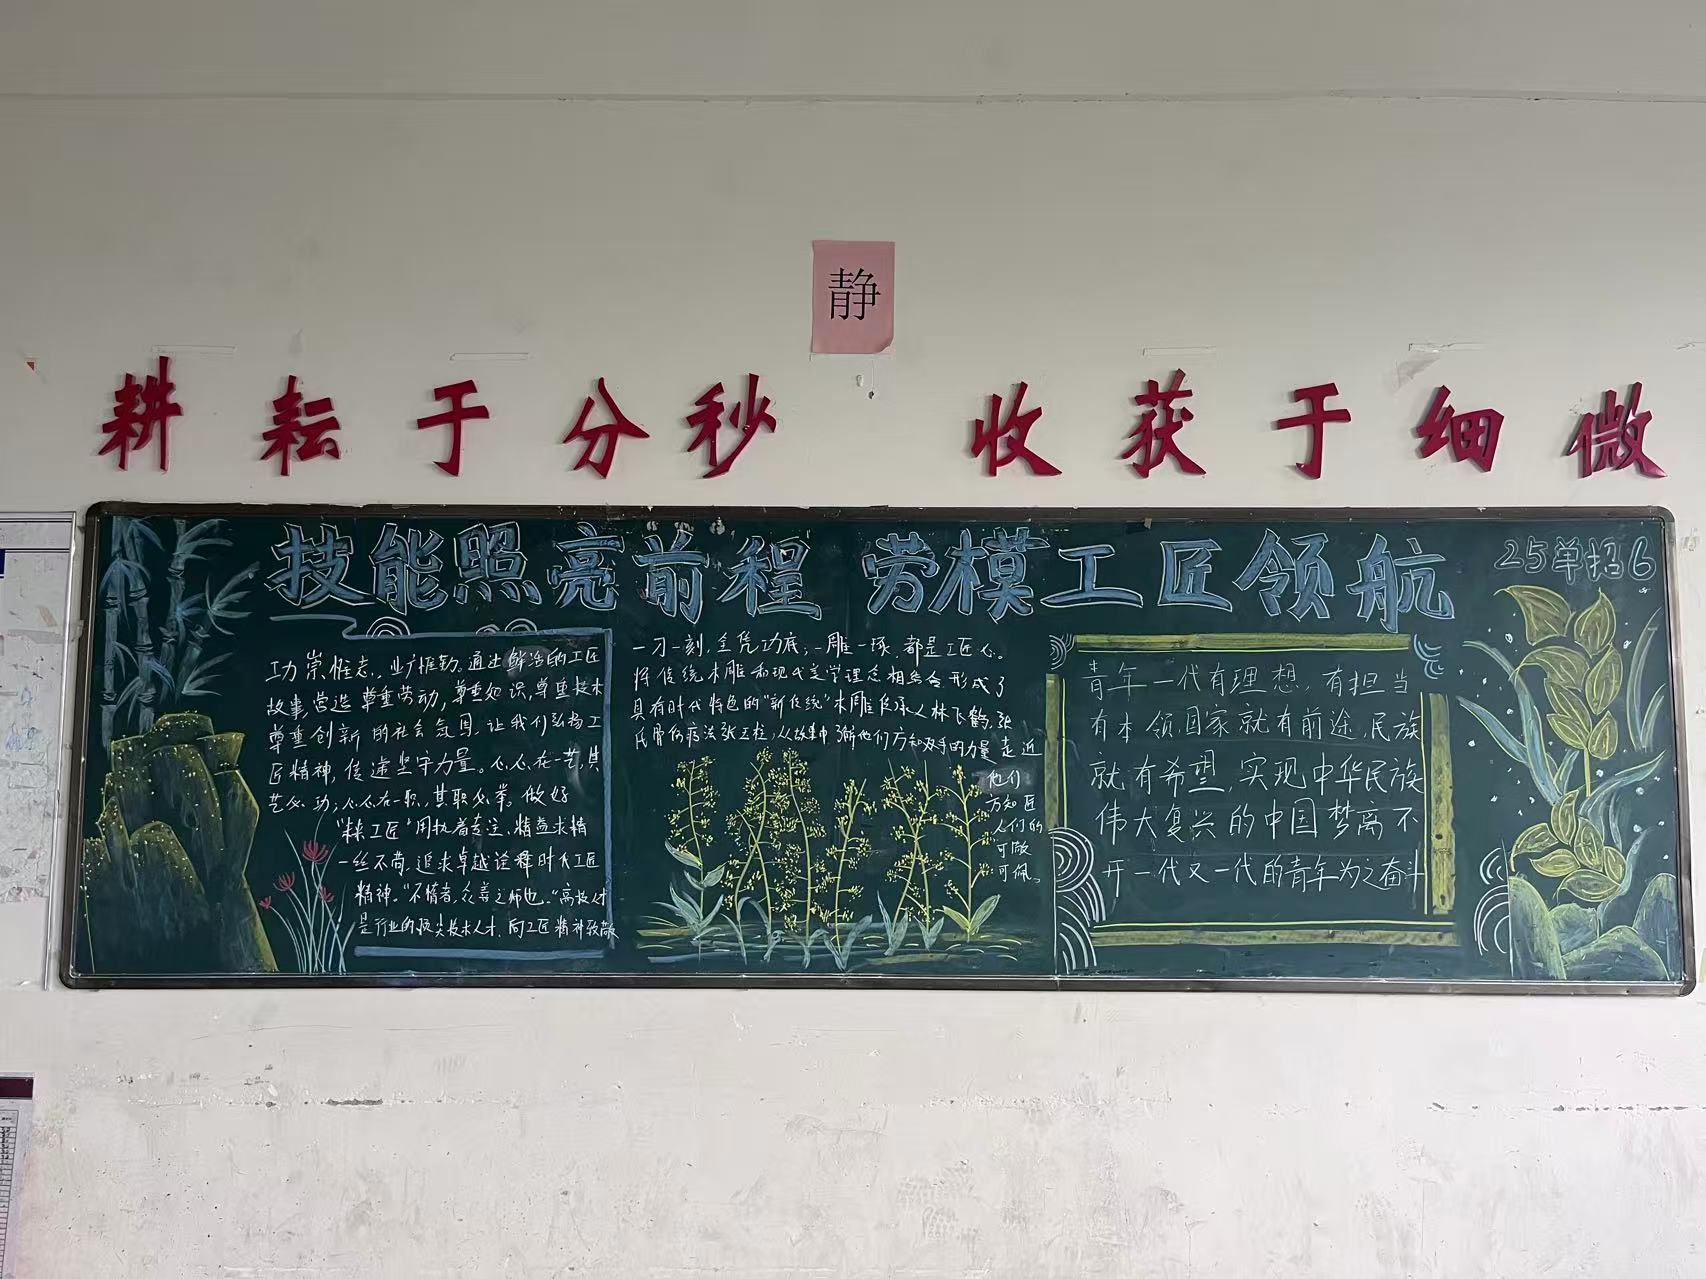 静
耕耘于分秒 收获于细微
技能照亮前程 劳模工匠领航
25单招6
功崇惟志，业广惟勤，通过鲜活的工匠
故事，营造尊重劳动，尊重知识，尊重技术
尊重创新的社会氛围，让我们弘扬工
匠精神，传递坚守力量。人人在一艺，其
艺必功；人人在一职，其职必举。做好
工匠"用执着专注、精益求精
一丝不苟、追求卓越诠释时代工匠
精神。"不惰者，众善之师也。"高技人才
是行业的顶尖技术人才，向工匠精神致敬
一刀一刻，全凭功底；一雕一琢，都是工匠心。
将传统木雕和现代美学理念相结合，形成了
具有时代特色的"新传统"木雕传承人林飞鹤，张
氏骨伤疗法张玉柱，从故事中了解他们方知双手的力量走近
他们
方知匠
人们的
可敬
可佩。
青年一代有理想，有担当
有本领，国家就有前途，民族
就有希望，实现中华民族
伟大复兴的中国梦离不
开一代又一代的青年为之奋斗